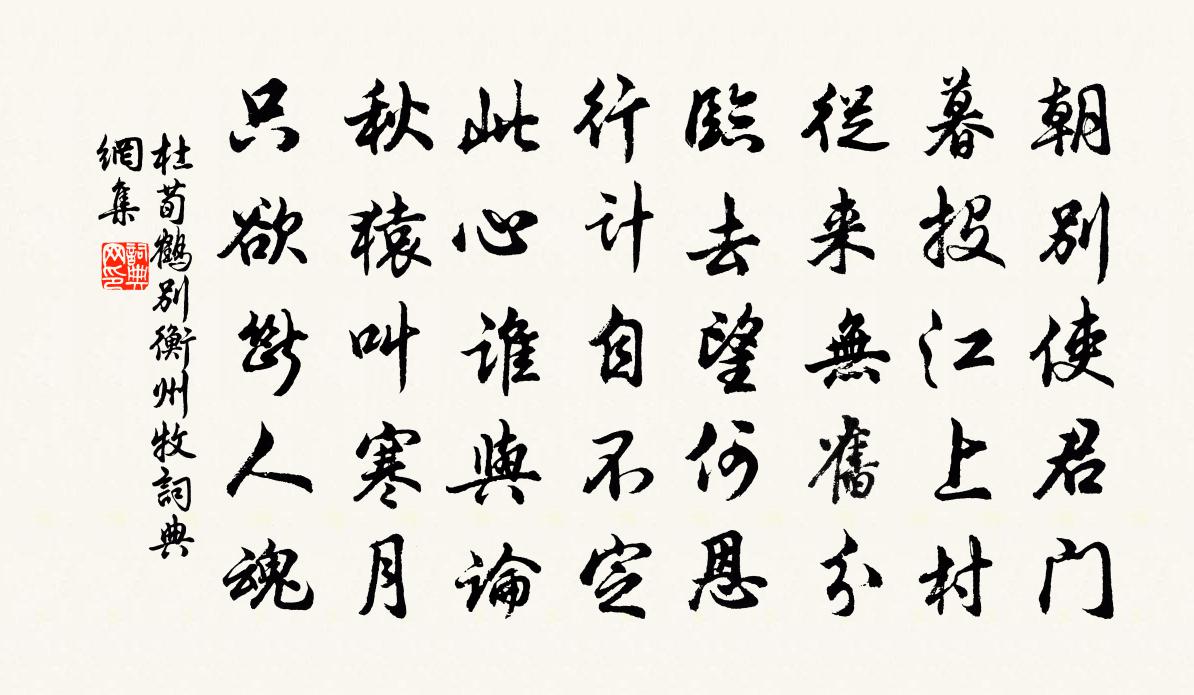 朝别使君门
暮投江上村
從来無舊分
臨去望何恩
行计自不定
此心誰與論
秋猿叫寒月
只欲斷人魂
杜荀鶴别衡州牧詞典
網集
詞典
网印